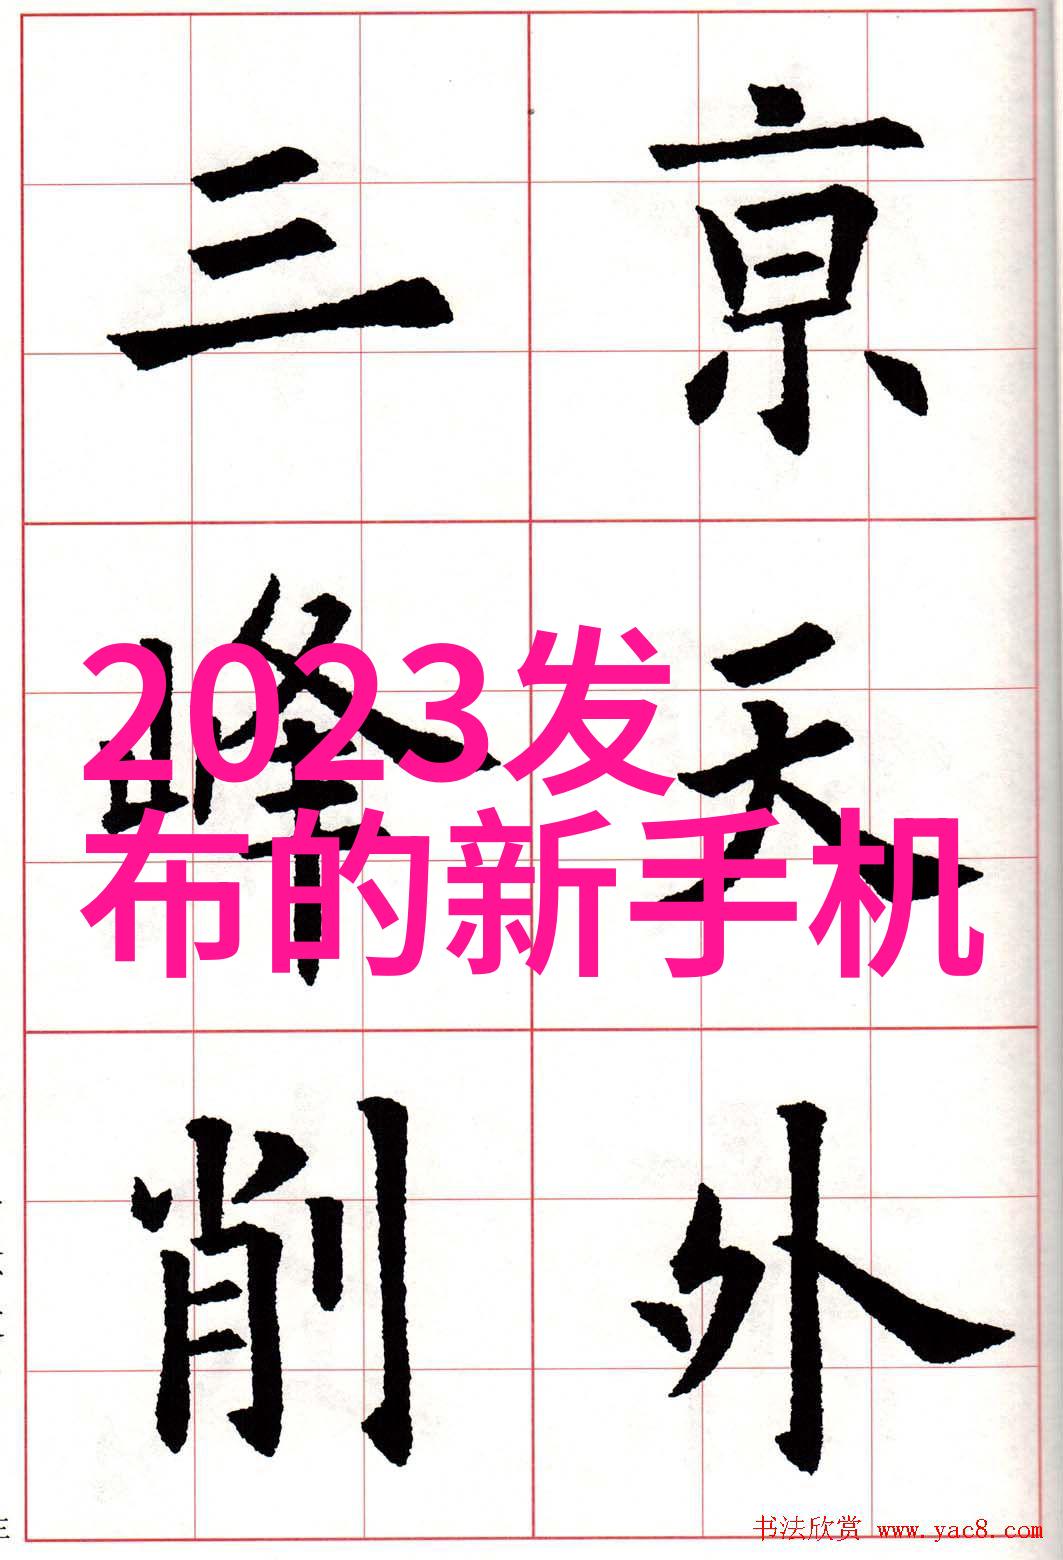 亰天外
三峰削
2023发
布的新手机
书法欣赏 www.yac8.com